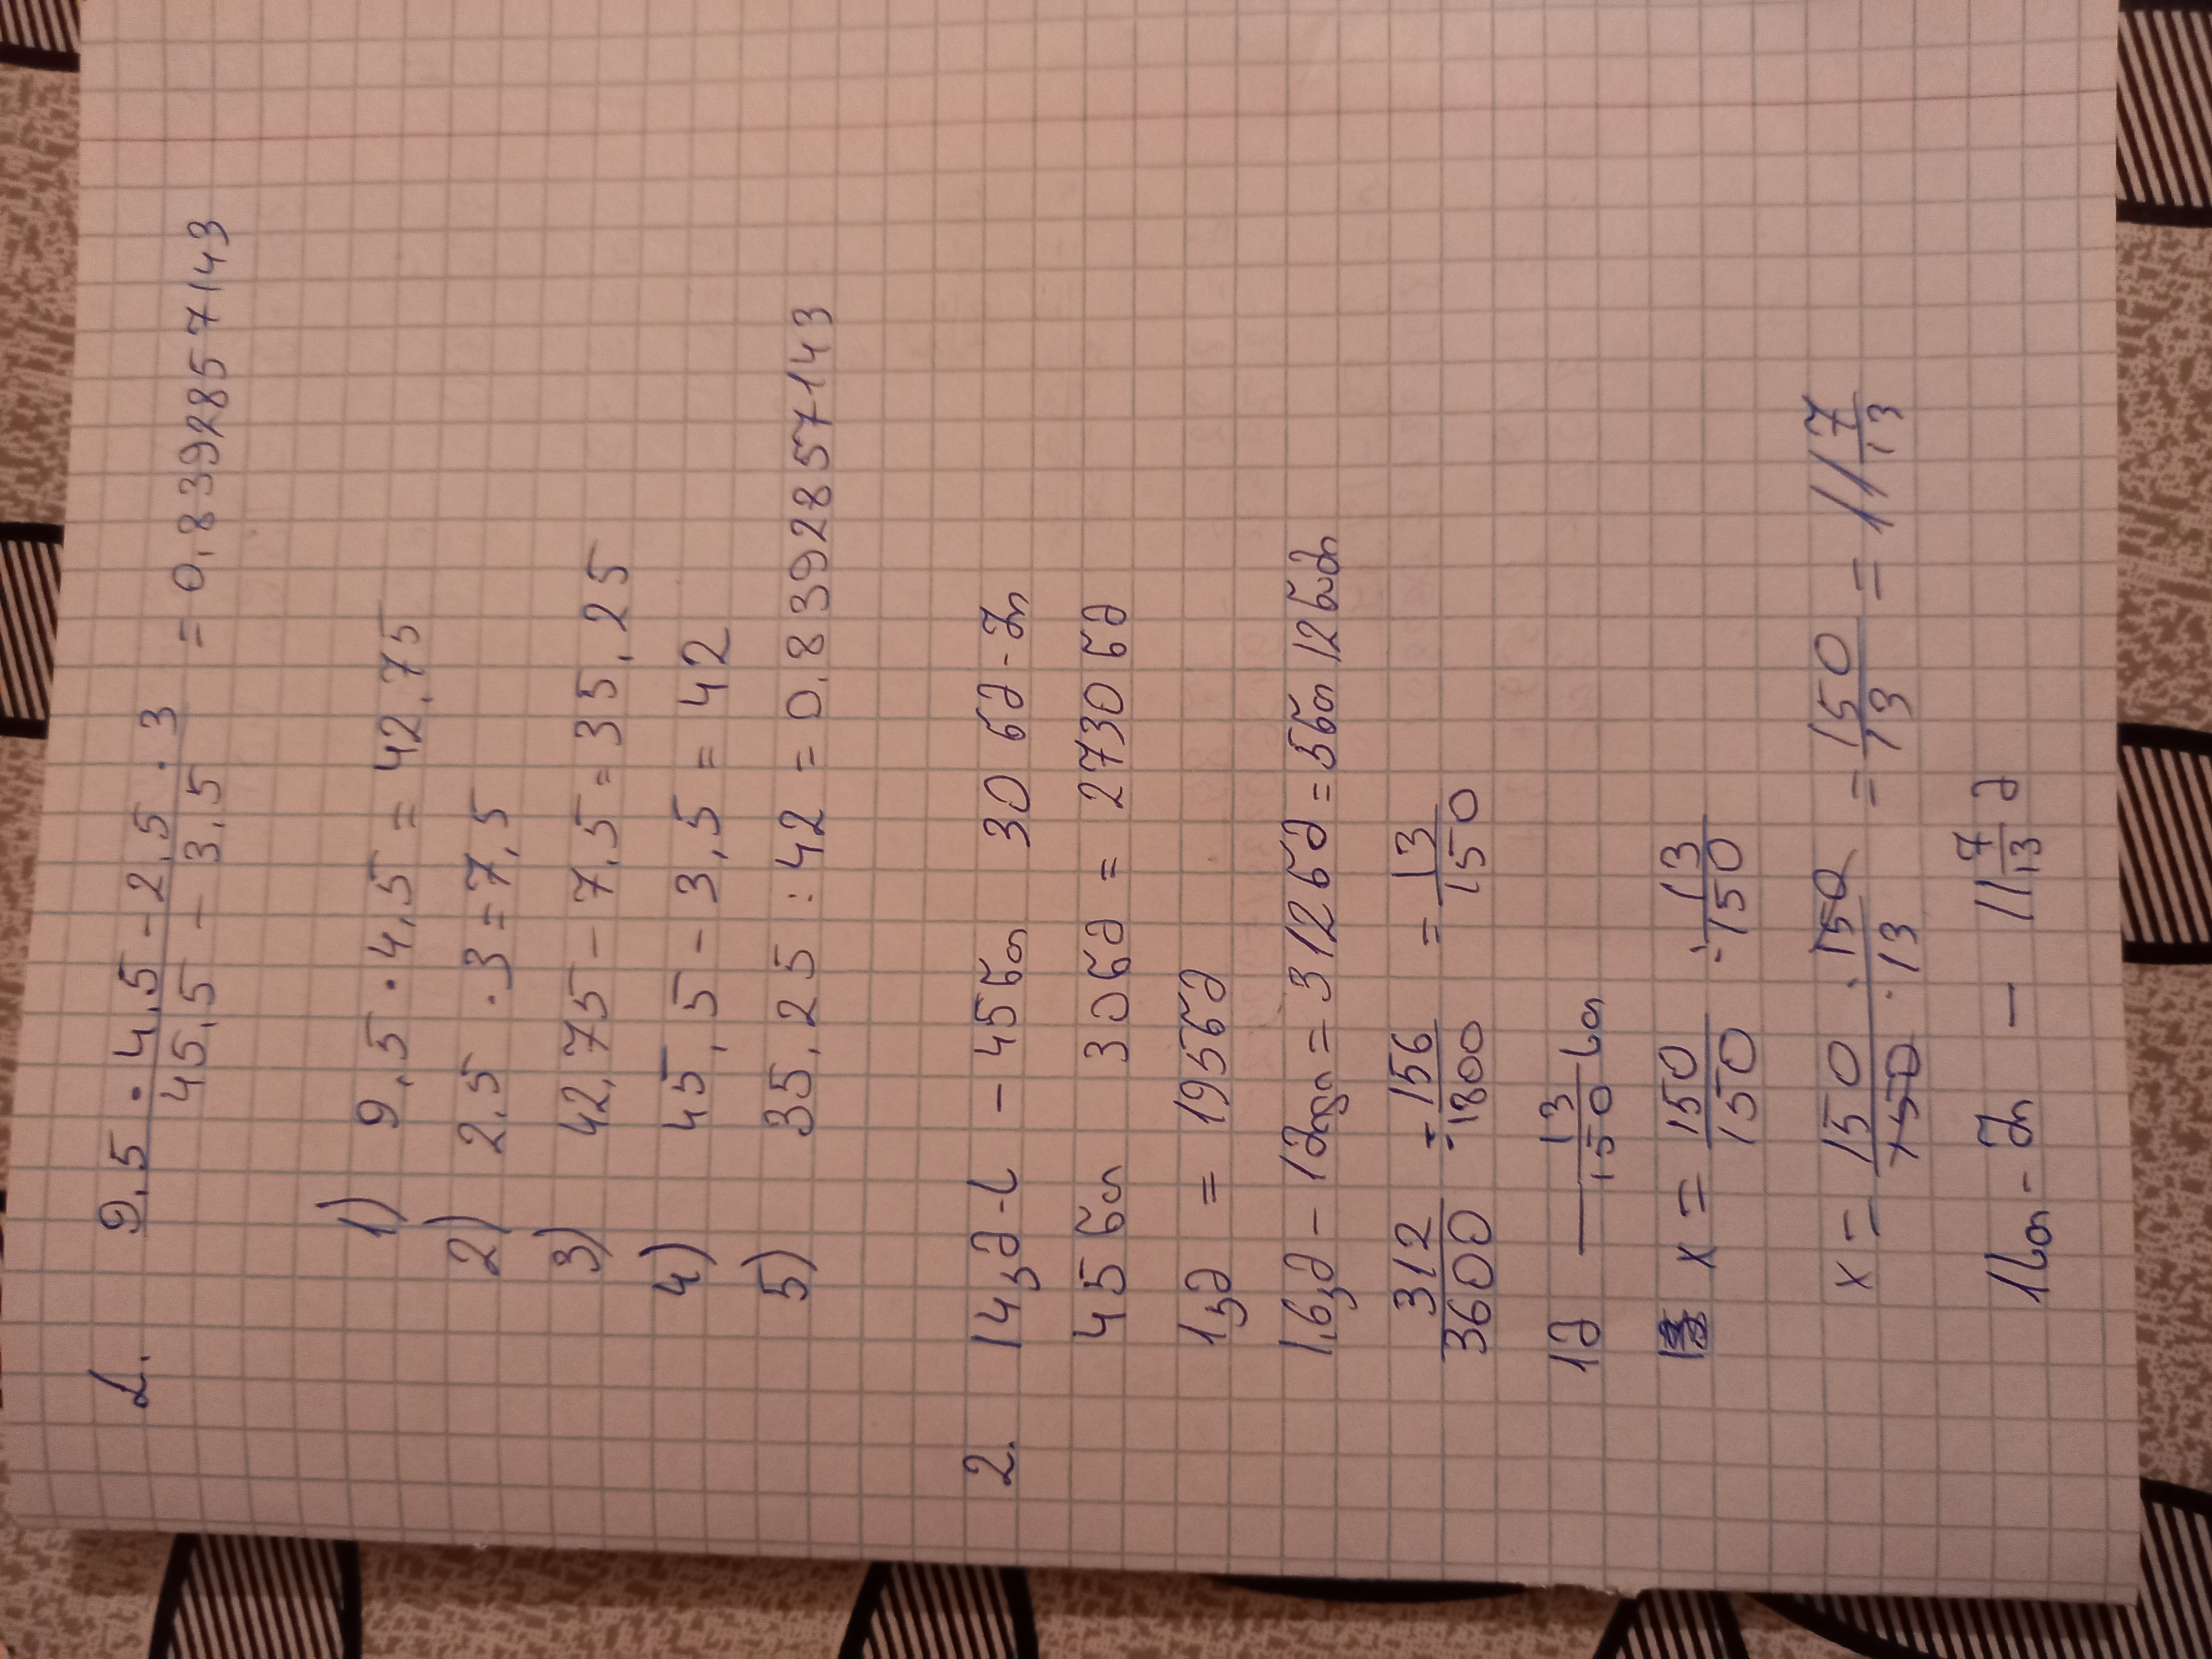 1. 9.5 · 4.5 - 2.5 · 3 / 45.5 - 3.5 = 0.8392857143
1) 9.5 · 4.5 = 42.75
2) 2.5 · 3 = 7.5
3) 42.75 - 7.5 = 35.25
4) 45.5 - 3.5 = 42
5) 35.25 : 42 = 0.8392857143
2. 14კმ-ს - 45წთ 30 წმ-ში
45 წთ 30წმ = 2730 წმ
1კმ = 195წმ
1.6კმ - 1მილი = 312წმ = 5წთ 12წამი
312/3600 = 156/1800 = 13/150
1მ — 13/150 სთ
x = 150/150 : 13/150
x = 150 · 150 / 150 · 13 = 150/13 = 11 7/13
1სთ-ში — 11 7/13 მ